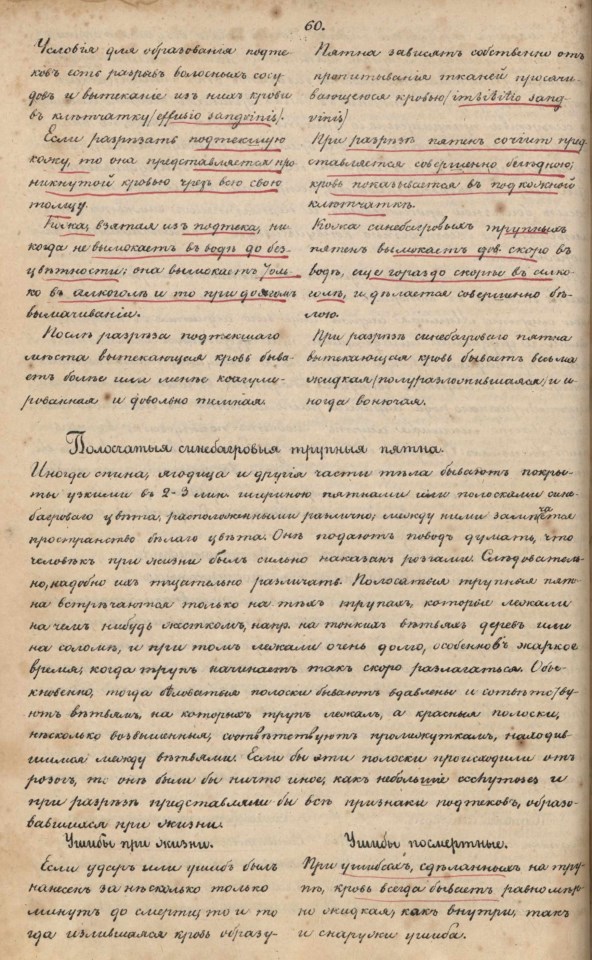 60.
Условія для образованія подте-
ковъ есть разрывъ волосныхъ сосу-
довъ и вытеканіе изъ нихъ крови
въ клѣтчатку (effusio sangvinis).
Если разрѣзать подтекшую
кожу, то она представляется про-
никнутой кровью чрезъ всю свою
толщу.
Кожа, взятая изъ подтека, ни-
когда не вымокаетъ въ водѣ до без-
цвѣтности; она вымокаетъ толь-
ко въ алкоголѣ и то при долгомъ
вымачиваніи.
Послѣ разрѣза подтекшаго
мѣста вытекающая кровь быва-
етъ болѣе или менѣе коагули-
рованная и довольно темная.
Пятна зависятъ собственно отъ
пропитыванія тканей просачи-
вающеюся кровью (imbibitio sang-
vinis)
При разрѣзѣ пятенъ сочіит пред-
ставляется совершенно блѣдною;
кровь показывается въ подкожной
клѣтчаткѣ.
Кожа синебагровыхъ трупныхъ
пятенъ вымокаетъ дов. скоро въ
водѣ, еще гораздо скорѣе въ алко-
голѣ, и дѣлается совершенно бѣ-
лою.
При разрѣзѣ синебагроваго пятна
вытекающая кровь бываетъ весьма
жидкая (полуразложившаяся) и и-
ногда вонючая.
Полосчатыя синебагровыя трупныя пятна.
Иногда спина, ягодица и другія части тѣла бываютъ покры-
ты узкими въ 2-3 лин. шириною пятнами или полосками сине-
багроваго цвѣта, расположенными различно; между ними замѣчается
пространство бѣлаго цвѣта. Онѣ подаютъ поводъ думать, что
человѣкъ при жизни былъ сильно наказан розгами. Слѣдователь-
но, надобно ихъ тщательно различать. Полосатыя трупныя пят-
на встрѣчаются только на тѣхъ трупахъ, которые лежали
на чемъ нибудь жесткомъ, напр. на тонкихъ вѣтвяхъ деревъ или
на соломѣ, и при томъ лежали очень долго, особенно въ жаркое
время, когда трупъ начинаетъ такъ скоро разлагаться. Обы-
кновенно, тогда бѣловатыя полоски бываютъ вдавлены и соотвѣтству-
ютъ вѣтвямъ, на которыхъ трупъ лежалъ, а красныя полоски,
нѣсколько возвышенныя, соотвѣтствуютъ промежуткамъ, находив-
шимся между вѣтвями. Если бы эти полоски происходили отъ
розогъ, то онѣ были бы ничто иное, какъ небольшіе и
при разрѣзѣ представляли бы всѣ признаки подтековъ, образо-
вавшихся при жизни.
Ушибы при жизни.
Если ударъ или ушибъ былъ
нанесенъ за нѣсколько только
минутъ до смерти, то и то-
гда излившаяся кровь образу-
Ушибы посмертные.
При ушибахъ, сдѣланныхъ на тру-
пѣ, кровь всегда бываетъ равномѣр-
но жидкая, какъ внутри, такъ
и снаружи ушиба.